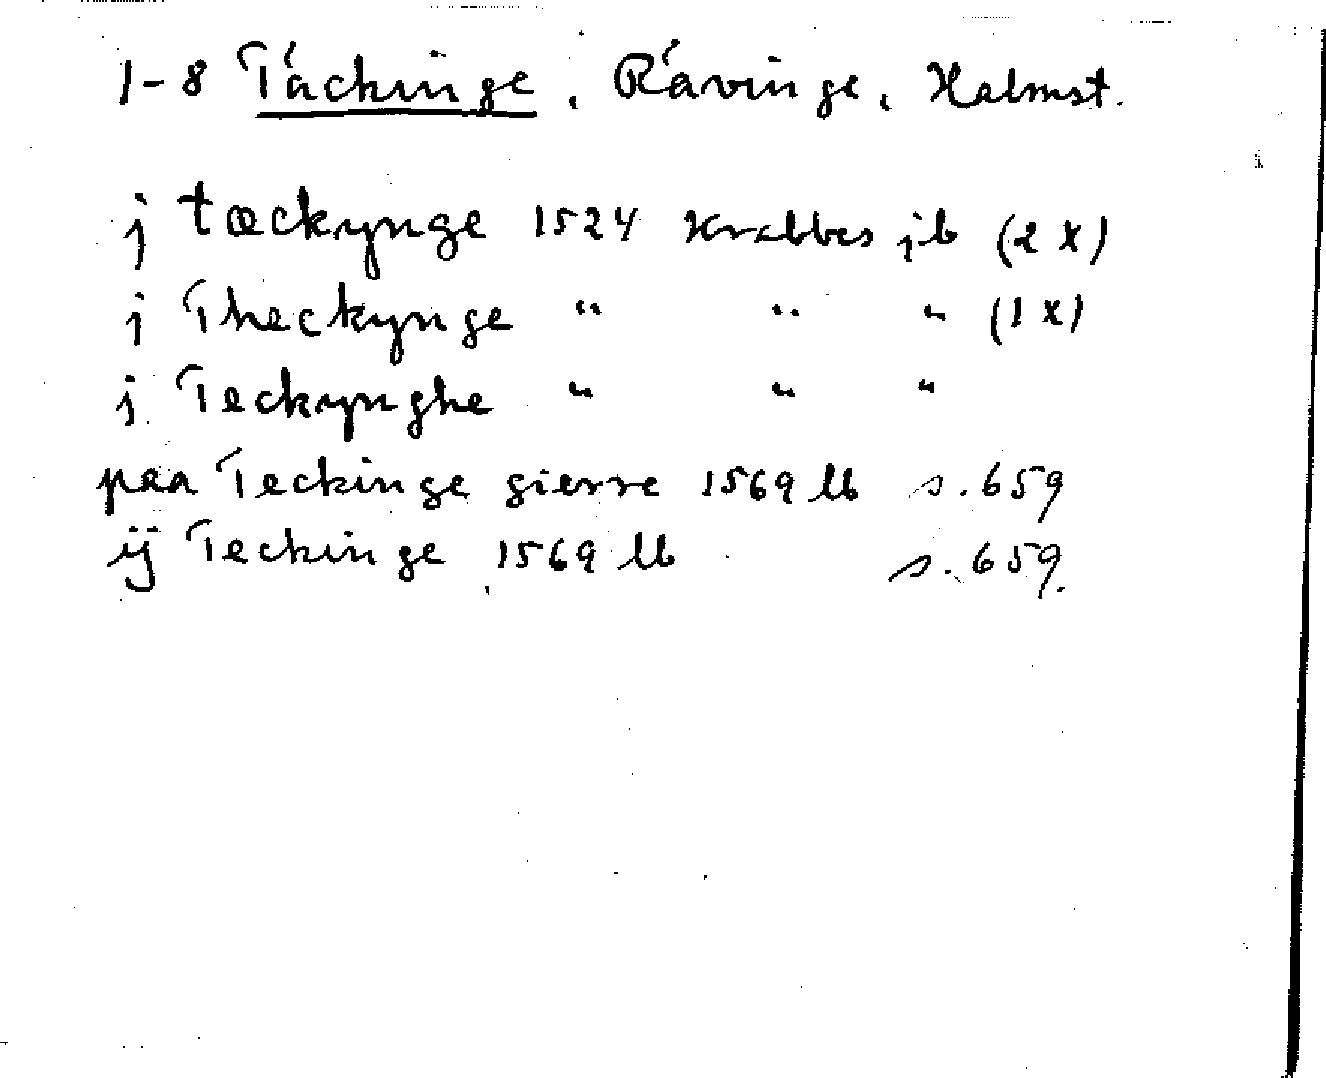 1-8 Täckinge, Rävinge, Halmst.
j tæckynge 1524 Krabbes jb (2 x)
j Theckynge " " " (1 x)
j Teckynghe " " "
paa Teckinge gierre 1569 lb s. 659
ij Teckinge 1569 lb s. 659.